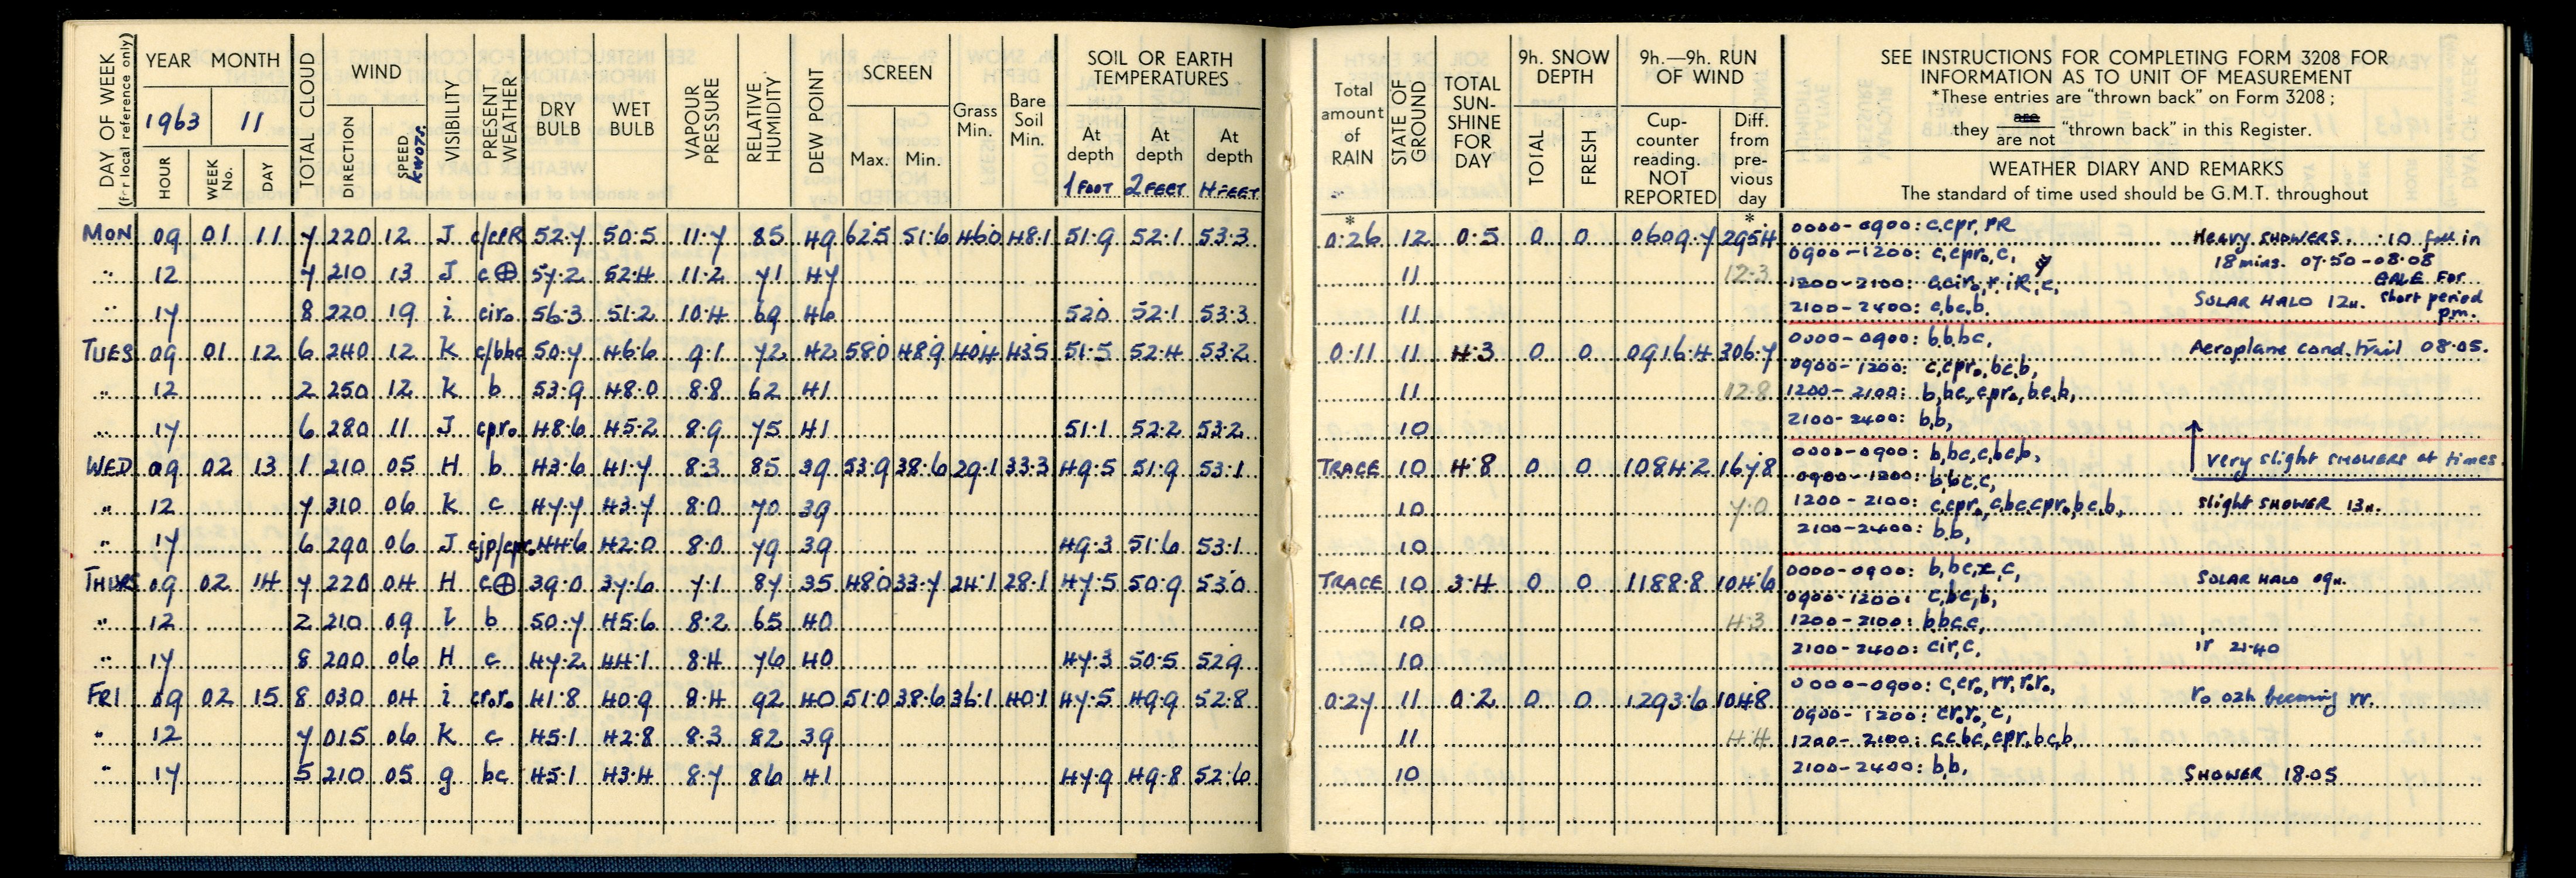 DAY OF WEEK (for local reference only) YEAR MONTH TOTAL CLOUD WIND VISIBILITY PRESENT WEATHER DRY BULB WET BULB VAPOUR PRESSURE RELATIVE HUMIDITY DEW POINT SCREEN Grass Min. Bare Soil Min. SOIL OR EARTH TEMPERATURES
1963 11
HOUR WEEK No. DAY DIRECTION SPEED KNOTS. Max. Min. At depth 1 FOOT At depth 2 FEET At depth 4 FEET
MON 09 01 11 7 220 12 J c/cpR 52.7 50.5 11.7 85 49 62.5 51.6 46.0 48.1 51.9 52.1 53.3
" 12 7 210 13 J c⊕ 57.2 52.4 11.2 71 47
" 17 8 220 19 i cir₀ 56.3 51.2 10.4 69 46 52.0 52.1 53.3
TUES 09 01 12 6 240 12 K c/bbc 50.7 46.6 9.1 72 42 58.0 48.9 40.4 43.5 51.5 52.4 53.2
" 12 2 250 12 K b 53.9 48.0 8.8 62 41
" 17 6 280 11 J cpr₀ 48.6 45.2 8.9 75 41 51.1 52.2 53.2
WED 09 02 13 1 210 05 H b 43.6 41.7 8.3 85 39 53.9 38.6 29.1 33.3 49.5 51.9 53.1
" 12 7 310 06 K c 47.7 43.7 8.0 70 39
" 17 6 290 06 J cjp/cpr₀ 44.6 42.0 8.0 79 39 49.3 51.6 53.1
THURS 09 02 14 7 220 04 H c⊕ 39.0 37.6 7.1 87 35 48.0 33.7 24.1 28.1 47.5 50.9 53.0
" 12 2 210 09 b 50.7 45.6 8.2 65 40
" 17 8 200 06 H c 47.2 44.1 8.4 76 40 47.3 50.5 52.9
FRI 09 02 15 8 030 04 i cr₀r₀ 41.8 40.9 8.4 92 40 51.0 38.6 36.1 40.1 47.5 49.9 52.8
" 12 7 015 06 K c 45.1 42.8 8.3 82 39
" 17 5 210 05 g bc 45.1 43.4 8.7 86 41 47.9 49.8 52.6
Total amount of RAIN STATE OF GROUND TOTAL SUN-SHINE FOR DAY 9h. SNOW DEPTH 9h.—9h. RUN OF WIND
TOTAL FRESH Cup-counter reading. NOT REPORTED Diff. from pre-vious day
SEE INSTRUCTIONS FOR COMPLETING FORM 3208 FOR
INFORMATION AS TO UNIT OF MEASUREMENT
*These entries are "thrown back" on Form 3208;
they are are not "thrown back" in this Register.
WEATHER DIARY AND REMARKS
The standard of time used should be G.M.T. throughout
* *
0.26 12 0.5 0 0 0609.7 295.4 0000-0900: c,cpr,PR Heavy SHOWERS. .10 fall in
0900-1200: c,cpr₀,c, 18 mins. 07.50-08.08
11 12.3 1200-2100: c,cir₀,r,iR,c, GALE For short period p.m.
11 2100-2400: c,bc,b. SOLAR HALO 12H.
0.11 11 4.3 0 0 0916.4 306.7 0000-0900: b,bc, Aeroplane cond. trail 08.05.
0900-1200: c,cpr₀,bc,b,
11 12.8 1200-2100: b,bc,cpr₀,bc,b,
10 2100-2400: b,b,
TRACE 10 4.8 0 0 1084.2 167.8 0000-0900: b,bc,c,bc,b, Very slight SHOWERS at times
0900-1200: b,bc,c,
10 7.0 1200-2100: c,cpr₀,c,bc,cpr₀,bc,b, slight SHOWER 13H.
10 2100-2400: b,b,
TRACE 10 3.4 0 0 1188.8 104.6 0000-0900: b,bc,x,c, SOLAR HALO 09H.
0900-1200: c,bc,b,
10 4.3 1200-2100: b,bc,c,
10 2100-2400: c,ir,c, ir 21.40
0.27 11 0.2 0 0 1293.6 104.8 0000-0900: c,cr₀,rr,r₀r₀, r₀ 02h becoming rr.
0900-1200: cr₀r₀,c,
11 4.4 1200-2100: c,c,bc,cpr,bc,b,
10 2100-2400: b,b, SHOWER 18.05